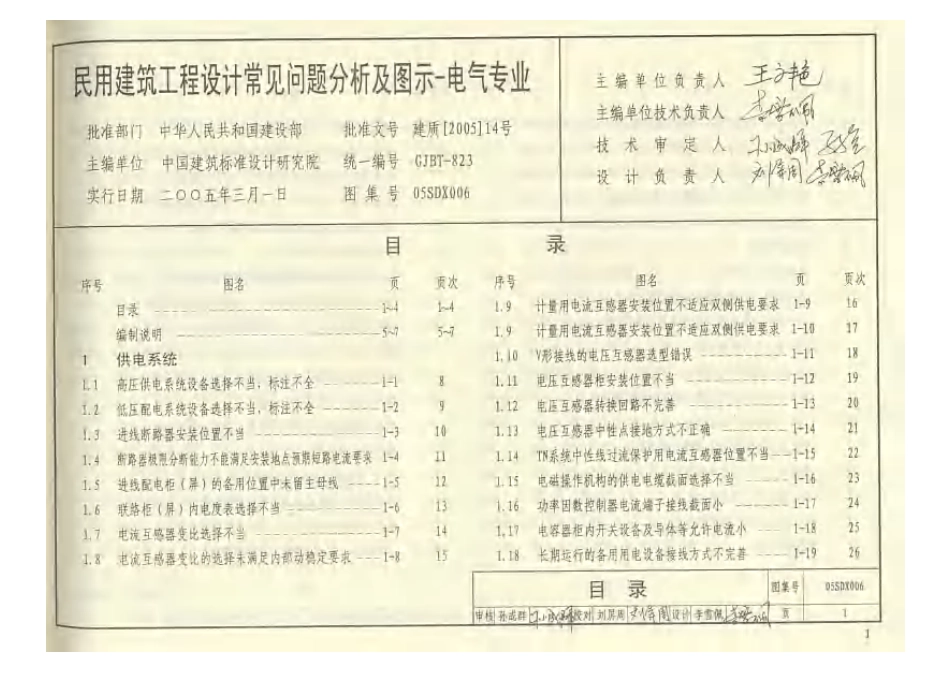 民用建筑工程设计常见问题分析及图示-电气专业
批准部门 中华人民共和国建设部 批准文号 建质[2005]14号
主编单位 中国建筑标准设计研究院 统一编号 GJBT-823
实行日期 二〇〇五年三月一日 图集号 05SDX006
主编单位负责人
主编单位技术负责人
技术审定人
设计负责人
目 录
序号 图名 页 页次
目录 1-4 1-4
编制说明 5-7 5-7
1 供电系统
1.1 高压供电系统设备选择不当、标注不全 1-1 8
1.2 低压配电系统设备选择不当、标注不全 1-2 9
1.3 进线断路器安装位置不当 1-3 10
1.4 断路器极限分断能力不能满足安装地点预期短路电流要求 1-4 11
1.5 进线配电柜（屏）的备用位置中未留主母线 1-5 12
1.6 联络柜（屏）内电度表选择不当 1-6 13
1.7 电流互感器变比选择不当 1-7 14
1.8 电流互感器变比的选择未满足内部动稳定要求 1-8 15
序号 图名 页 页次
1.9 计量用电流互感器安装位置不适应双侧供电要求 1-9 16
1.9 计量用电流互感器安装位置不适应双侧供电要求 1-10 17
1.10 V形接线的电压互感器选型错误 1-11 18
1.11 电压互感器柜安装位置不当 1-12 19
1.12 电压互感器转换回路不完善 1-13 20
1.13 电压互感器中性点接地方式不正确 1-14 21
1.14 TN系统中性线过流保护用电流互感器位置不当 1-15 22
1.15 电磁操作机构的供电电缆截面选择不当 1-16 23
1.16 功率因数控制器电流端子接线截面小 1-17 24
1.17 电容器柜内开关设备及导体等允许电流小 1-18 25
1.18 长期运行的备用用电设备接线方式不完善 1-19 26
目 录 图集号 05SDX006
审核 孙成群 校对 刘屏周 设计 李雪佩 页 1
1